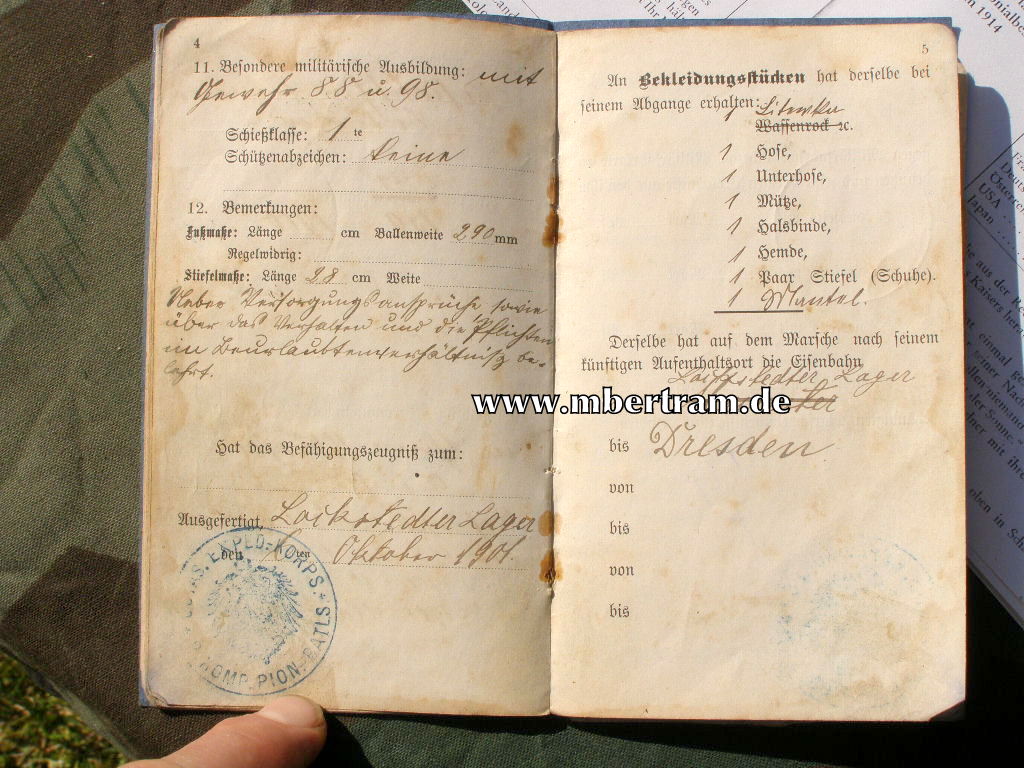 4
11. Besondere militärische Ausbildung: mit
Gewehr 88 u. 98.
Schießklasse: 1 te
Schützenabzeichen: keine
12. Bemerkungen:
Fußmaße: Länge cm Ballenweite 290 mm
Regelwidrig:
Stiefelmaße: Länge 28 cm Weite
Ueber Versorgungsansprüche sowie
über das Verhalten und die Pflichten
im Beurlaubtenverhältniß be-
lehrt.
Hat das Befähigungszeugniß zum:
Ausgefertigt, Lockstedter Lager
den ten Oktober 1901.
EXPED-KORPS
KOMP. PION. BATLS
5
An Bekleidungsstücken hat derselbe bei
seinem Abgange erhalten:
1 Litewka
Waffenrock ꝛc.
1 Hose,
1 Unterhose,
1 Mütze,
1 Halsbinde,
1 Hemde,
1 Paar Stiefel (Schuhe).
1 Mantel.
Derselbe hat auf dem Marsche nach seinem
künftigen Aufenthaltsort die Eisenbahn
Lockstedter Lager
bis Dresden
von
bis
von
bis
www.mbertram.de
en 1914
Deutsch
Österreic
USA
Japan